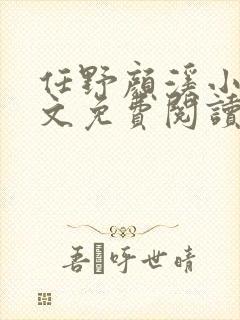 任野顏溪小
文免費閱讀
吾 吁世晴